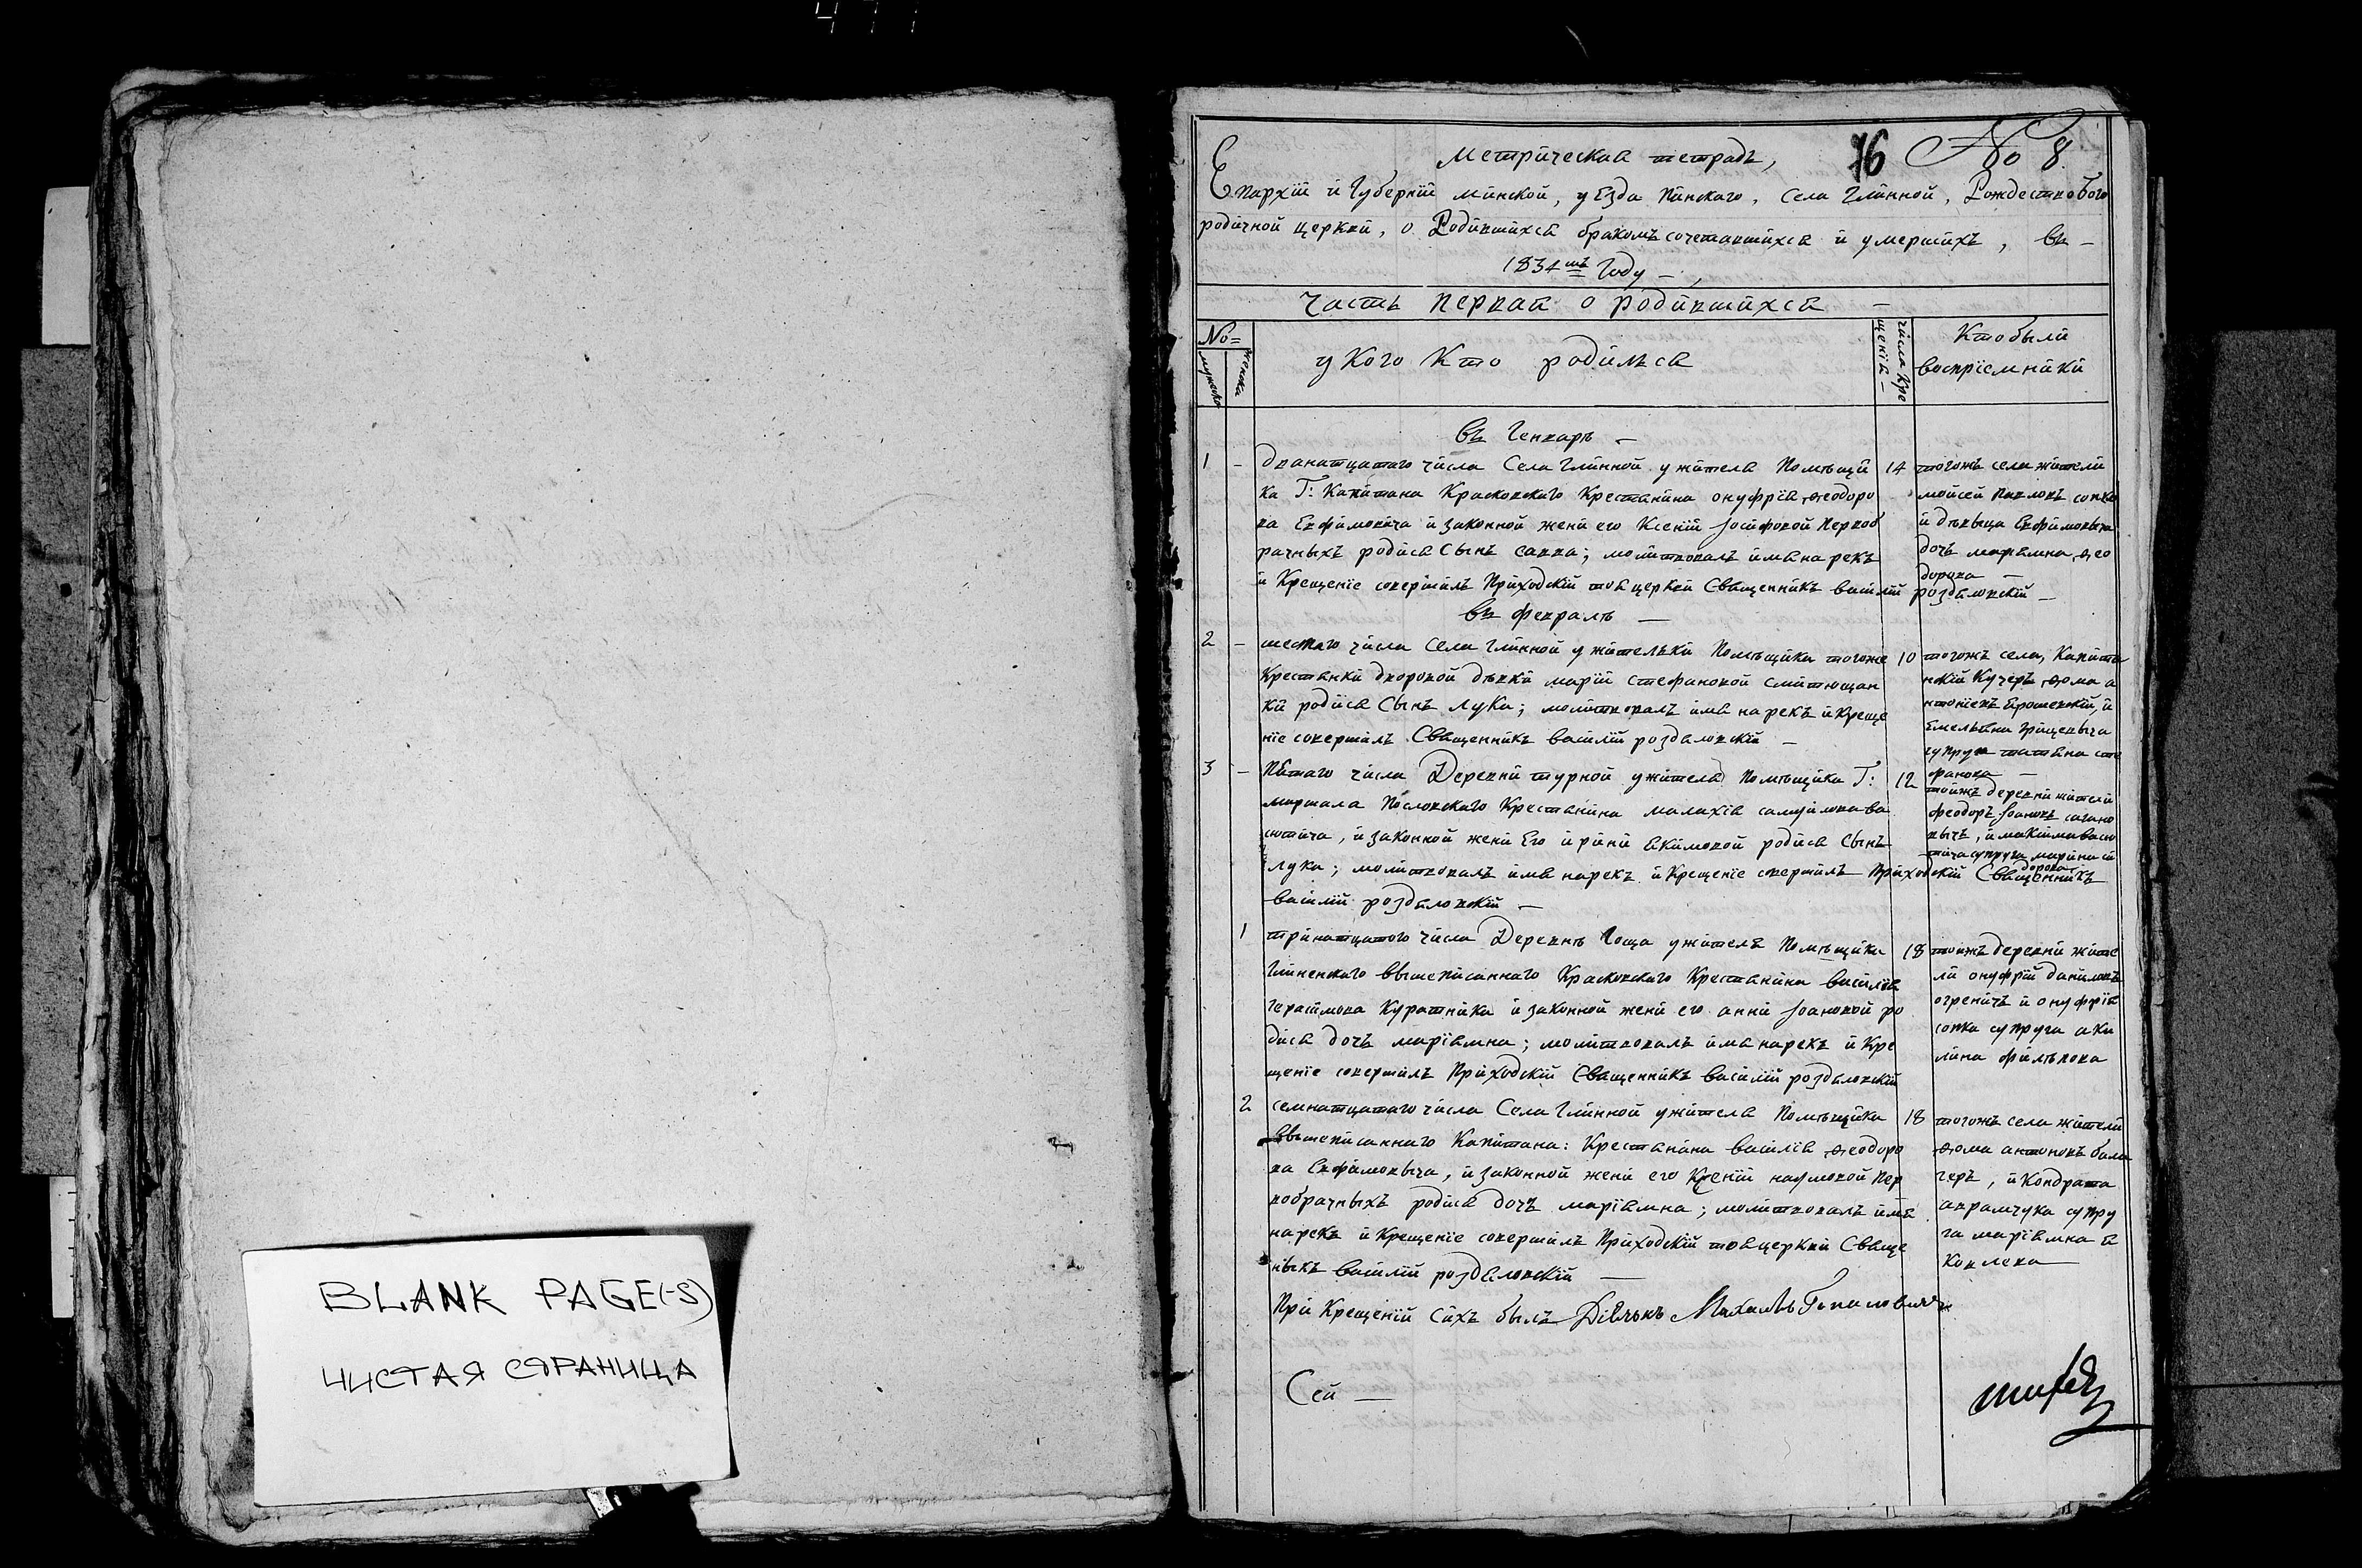 471
BLANK PAGE(-S)
ЧИСТАЯ СТРАНИЦА
Метрическая тетрадь, 76 No 8
Епархіи и Губерніи минской, уѣзда Пинскаго, Села Глинной, Рождествобого
родичной церкви, о Родившихся бракомъ сочетавшихся и умершихъ, въ –
1834мъ Году –
Часть первая о родившихся –
No=
мужеска
женска
у Кого Кто родился
числа Кре
щенія –
Кто были
воспріемники
въ Генварѣ –
1 – дванатцатого числа Села Глинной у жителя Помѣщи
ка Г: Капитана Красовского Крестянина онуфрія Ѳеодоро
ва Евфимовича и законной жени его Ксеніи Іосифовой первоб
рачныхъ родися Сынъ савва; молитвовалъ имя нарекъ
и Крещеніе совершилъ Приходскій тоя церкви Священникъ василій роздяловскій –
14 тогожъ села жители
мойсей павловъ сопко
и дѣвыца Евфимовыча
дочъ маріамна Ѳео
дорова –
въ февралѣ –
2 – шестого числа Села Глинной у жителки Помѣщика тогоже
Крестянки дворовой дѣвки маріи стефановой
ки родися Сынъ лука; молитвовалъ имя нарекъ и Креще
ніе совершилъ Священникъ василій роздяловскій –
10 тогожъ села, Капита
нскій Кучеръ Ѳома а
нтоніевъ Ярошевскій, и
Емеляна Грицевыча
супруга татіана сте
фанова –
3 – Пятаго числа Деревни турной у жителя Помѣщика Г:
маршала Пословского Крестянина малахія самуилова ва
сютича, и законной жени Его ирини Якимовой родися Сынъ
лука; молитвовалъ имя нарекъ и Крещеніе совершилъ Приходскій Священникъ
василій роздяловскій –
12 тоижъ деревни жители
феодоръ Іоановъ
вычъ, и макима васю
тича супруга марина
дорова
1 тринатцатого числа Деревнѣ Гоща у жителя Помѣщика
Глиненского ввышеписанного Красовского Крестянина василія
герасимова Куратника и законной жени его анни Іоановой ро
дися дочъ маріамна; молитвовалъ имя нарекъ и Кре
щеніе совершилъ Приходскій Священникъ василій роздяловскій
18 тоижъ деревни жите
ли онуфрій даниловъ
огреничъ и онуфрія
сопка супруга аки
лина филѣпова
2 семнатцатаго числа Села Глинной у жителя Помѣщика
ввышеписанного Капитана: Крестянина василія Ѳеодоро
ва Евфимовыча, и законной жени его Ксеніи наумовой пер
вобрачныхъ родися дочъ маріамна; молитвовалъ имя
нарекъ и Крещеніе совершилъ Приходскій тоя церкви Свяще
ныкъ василій роздяловскій –
18 тогожъ села жители
Ѳома антоновъ бала
черъ, и Кондрата
аврамчука супру
га маріамна я
ковлева
При Крещеніи Сихъ былъ Діячокъ
Сей –